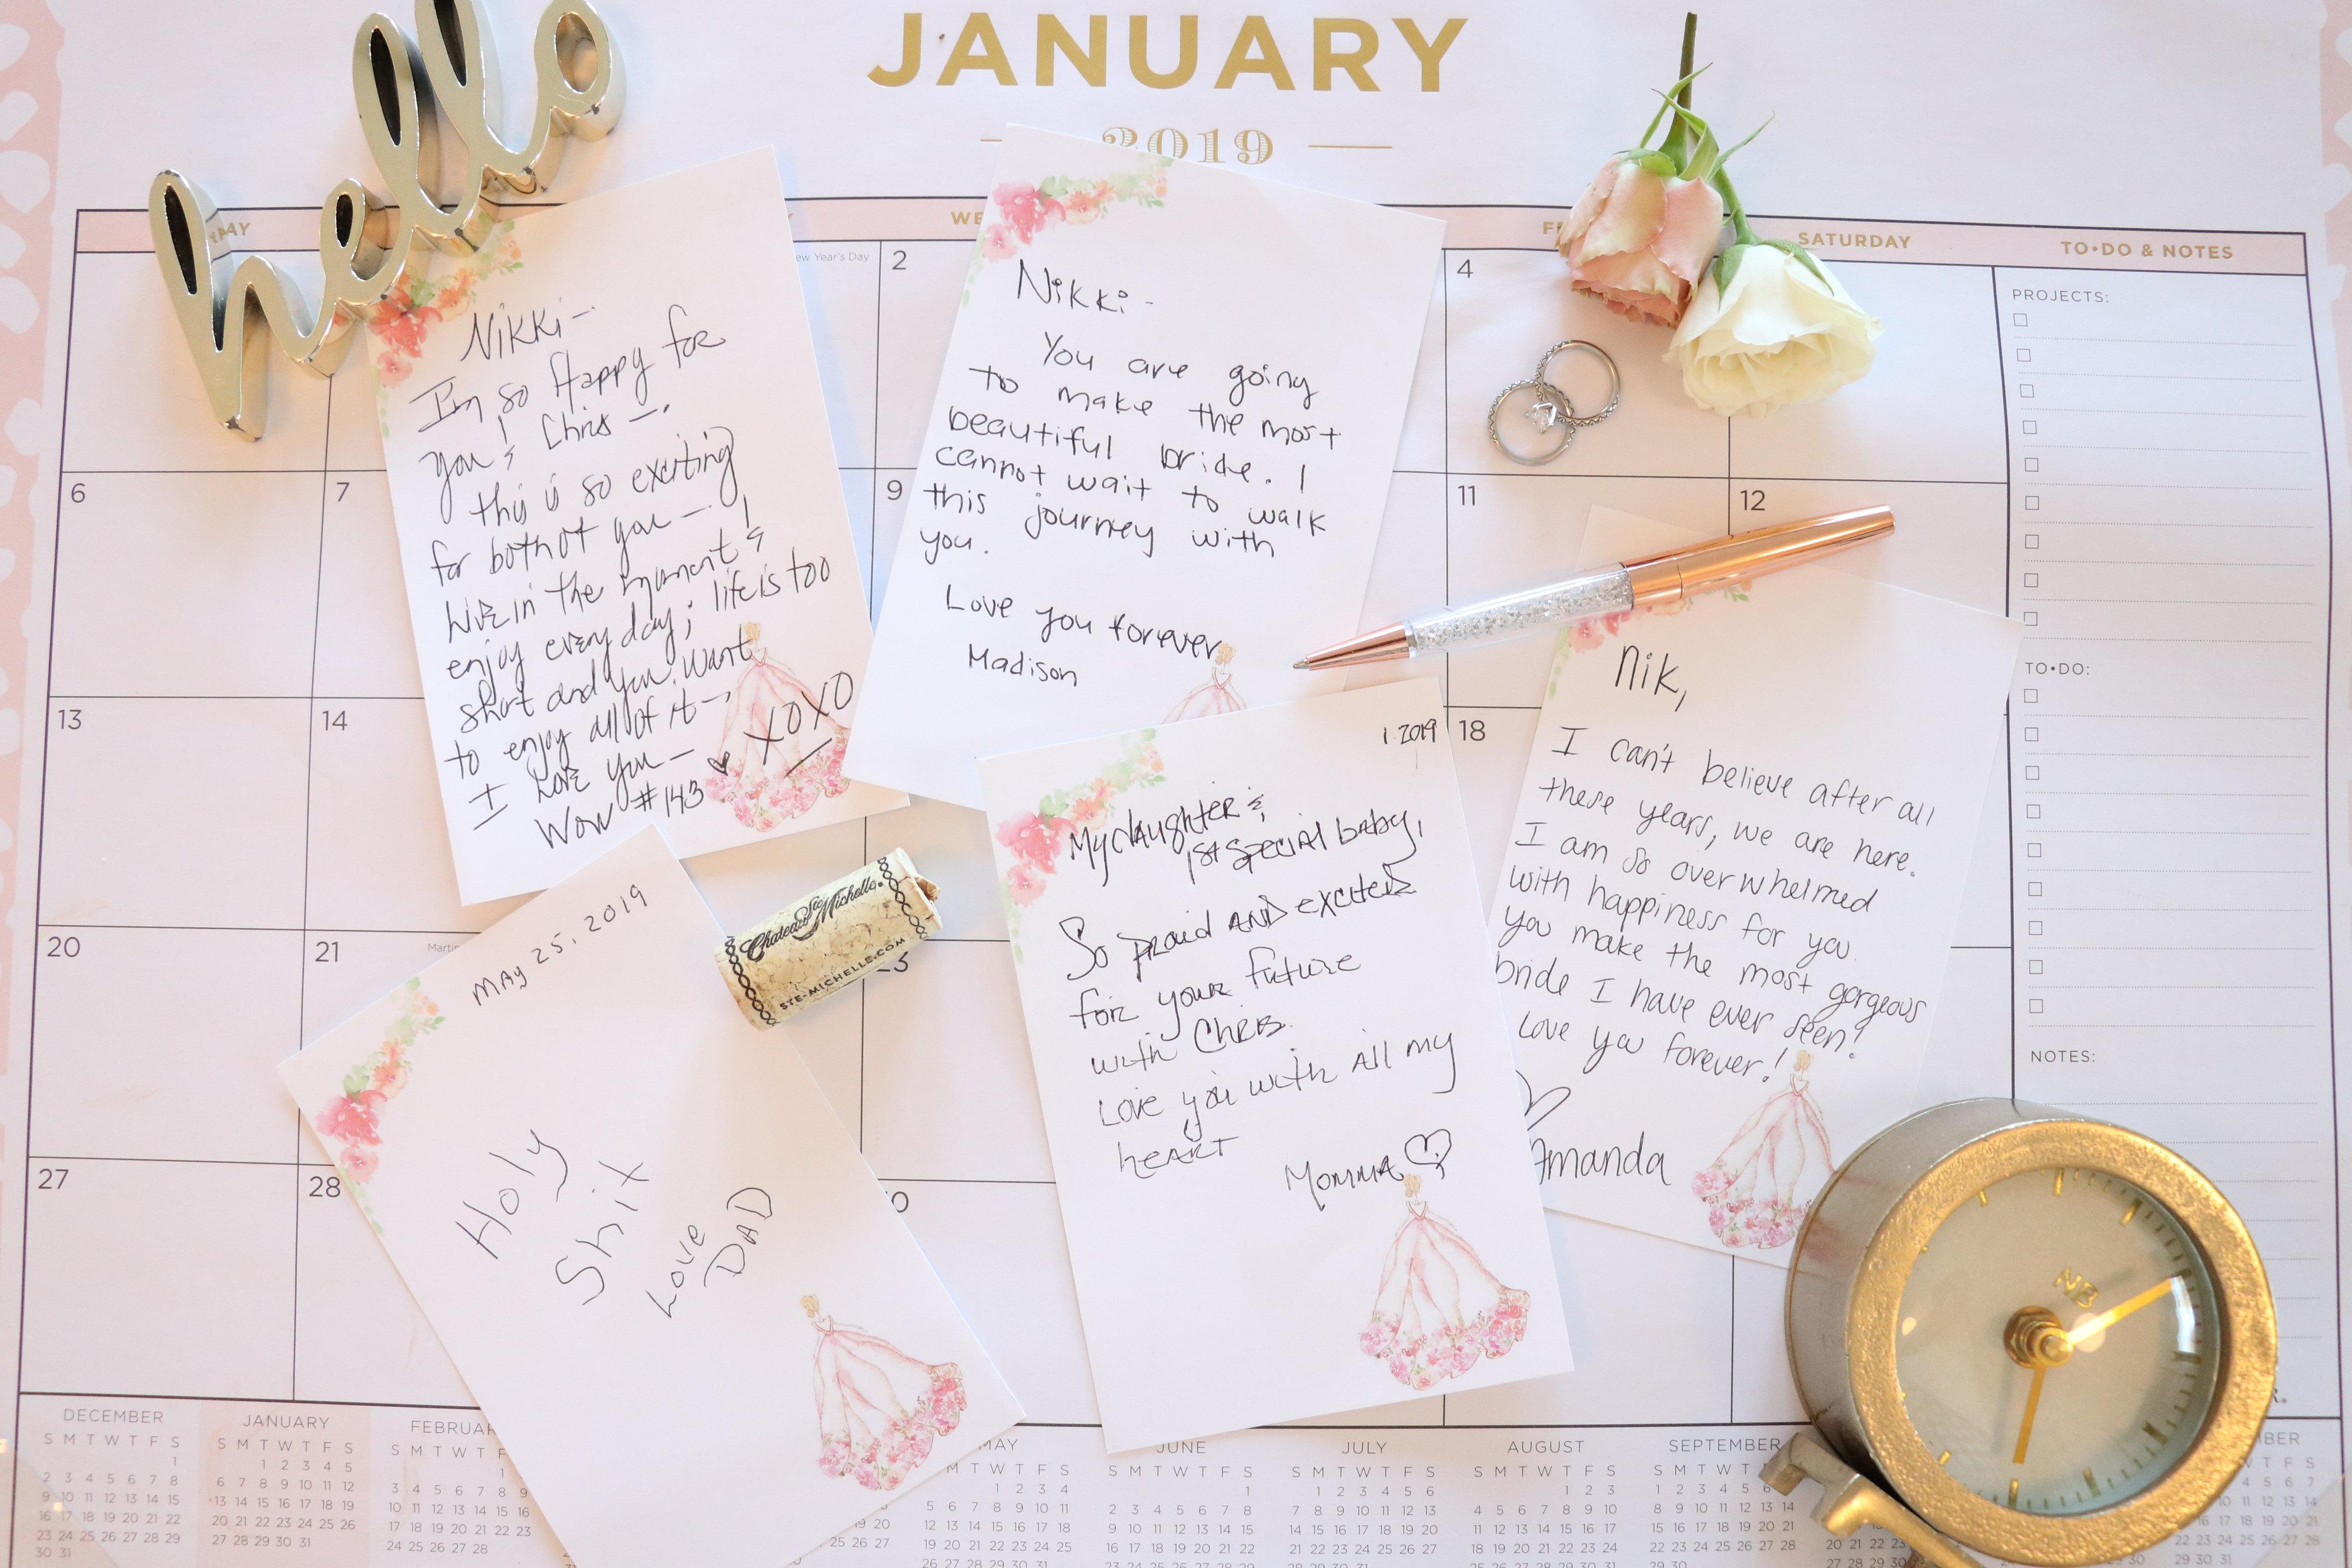 hello
JANUARY
2019
SATURDAY
TO•DO & NOTES
New Year's Day
2
4
6
7
9
11
12
13
14
18
20
21
27
28
PROJECTS:
TO•DO:
NOTES:
Nikki-
I'm so Happy for
you & Chris -.
this is so exciting
for both of you -.
Live in the moment &
enjoy every day; life is too
short and you want
to enjoy all of it -,
I Love you -
XOXO
Wow #143
Nikki-
You are going
to make the most
beautiful bride. I
cannot wait to walk
this journey with
you.
Love you forever,
Madison
Nik,
I can't believe after all
these years, we are here.
I am so overwhelmed
with happiness for you.
you make the most gorgeous
bride I have ever seen!
Love you forever!
Amanda
1 2019
My daughter &
1st special baby,
So proud AND excited
for your future
with Chris.
Love you with All my
heart
Momma
May 25, 2019
Holy
Shit
Love
DAD
Chateau Ste Michelle.
STE-MICHELLE.COM
NB
DECEMBER
S M T W T F S
1
2 3 4 5 6 7 8
9 10 11 12 13 14 15
16 17 18 19 20 21 22
23 24 25 26 27 28 29
30 31
JANUARY
S M T W T F S
1 2 3 4 5
6 7 8 9 10 11 12
13 14 15 16 17 18 19
20 21 22 23 24 25 26
27 28 29 30 31
FEBRUAR
S M T W T F
1
3 4 5 6 7 8 9
10 11 12 13 14 15 16
17 18 19 20 21 22 23
24 25 26 27 28
MAY
M T W T F S
1 2 3 4
5 6 7 8 9 10 11
12 13 14 15 16 17 18
19 20 21 22 23 24 25
26 27 28 29 30 31
JUNE
S M T W T F S
1
2 3 4 5 6 7 8
9 10 11 12 13 14 15
16 17 18 19 20 21 22
23 24 25 26 27 28 29
JULY
S M T W T F S
1 2 3 4 5 6
7 8 9 10 11 12 13
14 15 16 17 18 19 20
21 22 23 24 25 26 27
28 29 30 31
AUGUST
S M T W T F S
1 2 3
4 5 6 7 8 9 10
11 12 13 14 15 16 17
18 19 20 21 22 23 24
25 26 27 28 29 30 31
SEPTEMBER
S M T W T
1 2 3 4 5 6
8 9 10 11 12 13
15 16 17 18 19 20
22 23 24 25 26 27
29 30